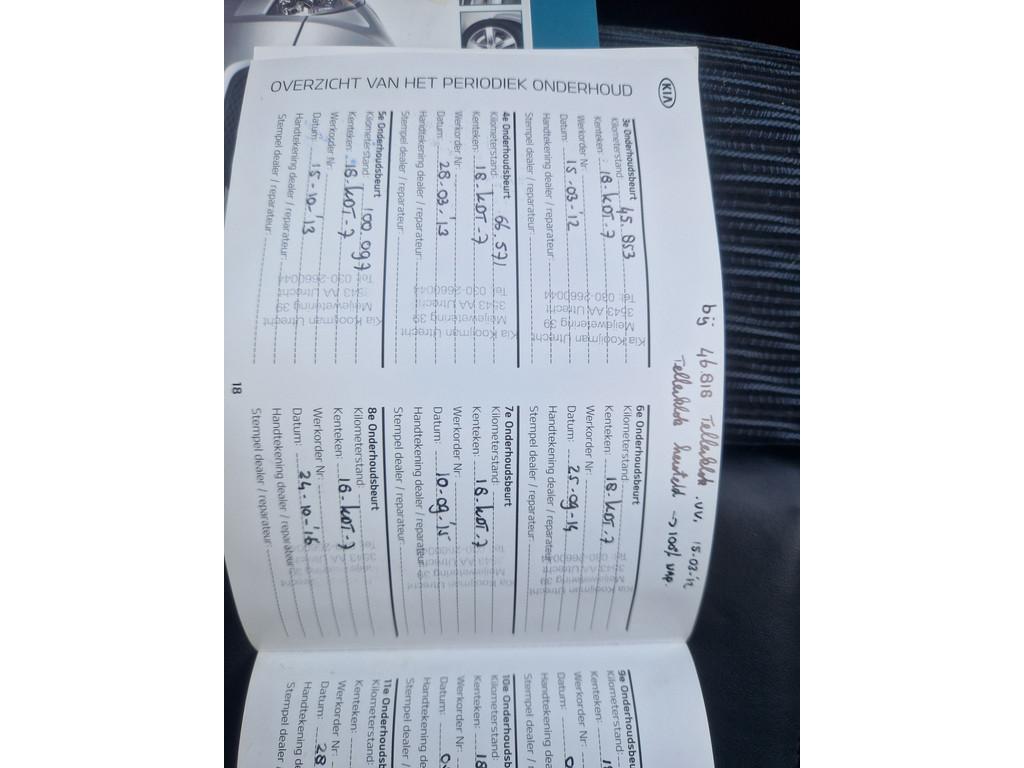 KIA
OVERZICHT VAN HET PERIODIEK ONDERHOUD
bij 46.818 Tellerklok .vv. 15-03-'12
Tellerklok hersteld -> 100% nap.
3e Onderhoudsbeurt
Kilometerstand: 45.853
Kenteken: 18-KDT-7
Werkorder Nr:
Datum: 15-03-'12
Handtekening dealer / reparateur:
Stempel dealer / reparateur:
Kia Kooijman Utrecht
Meijewetering 39
3543 AA Utrecht
Tel: 030-2660044
4e Onderhoudsbeurt
Kilometerstand: 66.571
Kenteken: 18-KDT-7
Werkorder Nr:
Datum: 28-03-'13
Handtekening dealer / reparateur:
Stempel dealer / reparateur:
Kia Kooijman Utrecht
Meijewetering 39
3543 AA Utrecht
Tel: 030-2660044
5e Onderhoudsbeurt
Kilometerstand: 100.097
Kenteken: 18-KDT-7
Werkorder Nr:
Datum: 15-10-'13
Handtekening dealer / reparateur:
Stempel dealer / reparateur:
Kia Kooijman Utrecht
Meijewetering 39
3543 AA Utrecht
Tel: 030-2660044
6e Onderhoudsbeurt
Kilometerstand:
Kenteken: 18-KDT-7
Werkorder Nr:
Datum: 25-09-14
Handtekening dealer / reparateur:
Stempel dealer / reparateur:
Kia Kooijman Utrecht
Meijewetering 39
3543 AA Utrecht
Tel: 030-2660044
7e Onderhoudsbeurt
Kilometerstand:
Kenteken: 18-KDT-7
Werkorder Nr:
Datum: 10-09-'15
Handtekening dealer / reparateur:
Stempel dealer / reparateur:
Kia Kooijman Utrecht
Meijewetering 39
3543 AA Utrecht
8e Onderhoudsbeurt
Kilometerstand:
Kenteken: 18-KDT-7
Werkorder Nr:
Datum: 24-10-'16
Handtekening dealer / reparateur:
Stempel dealer / reparateur:
18
9e Onderhoudsbeur
Kilometerstand:
Kenteken:
Werkorder Nr:
Datum:
Handtekening dealer
Stempel dealer / r
10e Onderhoudsb
Kilometerstand:
Kenteken: 18
Werkorder Nr:
Datum:
Handtekening de
Stempel dealer /
11e Onderhoudsb
Kilometerstand:
Kenteken:
Werkorder Nr:
Datum: 28
Handtekening d
Stempel dealer